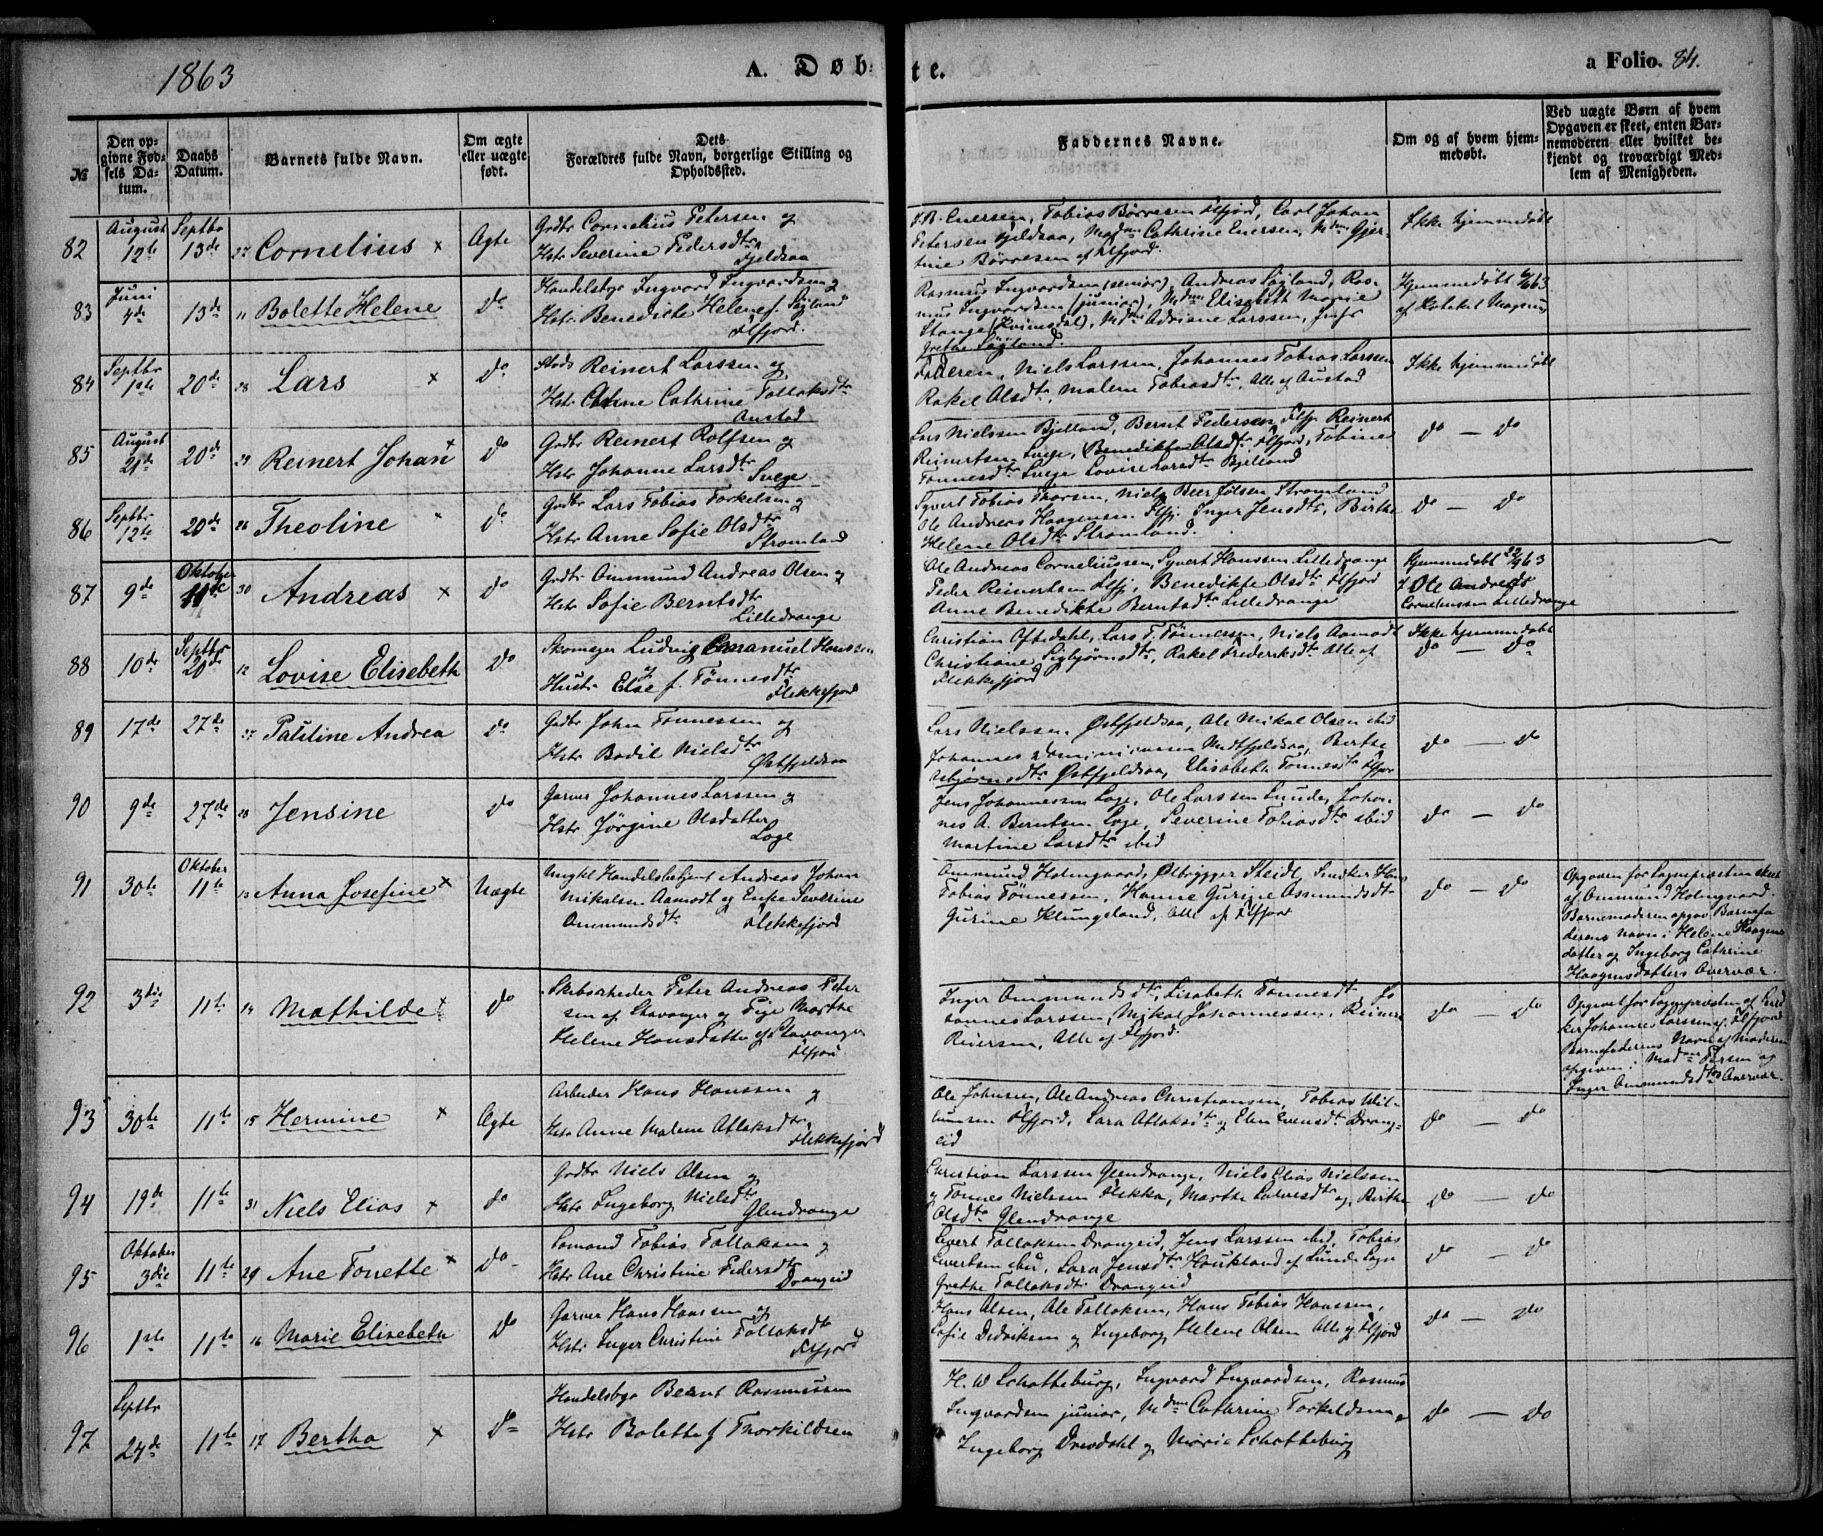 1863
A. Døbte.
a Folio. 84.
№
Den opgivne Fødsels Datum.
Daabs Datum.
Barnets fulde Navn.
Om ægte eller uægte født.
Dets Forældres fulde Navn, borgerlige Stilling og Opholdssted.
Faddernes Navne.
Om og af hvem hjemmedøbt.
Ved uægte Børn af hvem Opgaven er skeet, enten Barnemoderen eller hvilket bekjendt og troværdigt Medlem af Menigheden.
82 August 12te Septbr 13de 27 Cornelius x Ægte
Grdbr Cornelius Petersen og
Hstr Severine Pedersdtr
Fjeldsaa
Enersen, Tobias Børresen Flfjord, Carl Johan
Petersen Fjeldsaa, Madm Cathrine Enersen, Mdm Gjer-
tine Børresen af Flfjord.
Ikke hjemmedøbt
83 Juni 4de 13de 11 Bolette Helene do
Handelsbgr Ingvard Ingvardsen og
Hstr Benedicte Helene f. Søyland
Flfjord.
Rasmus Ingvardsen (senior), Andreas Søyland, Ras-
mus Ingvardsen (junior), Mdm Elisabeth Marie
Stange (Kvinesdal), Mdm Adriane Larssen, Jmfr
Grethe Søyland.
Hjemmedøbt 6/63
af Magnus
84 Septbr 1ste 20de 28 Lars x do
Reinert Larssen og
Hstr Anne Cathrine Tollaksdtr
Austad
Faderen, Niels Larssen, Johannes Tobias Larssen
Rakel Olsdtr, Malene Tobiasdtr, Alle af Austad
Ikke hjemmedøbt
85 August 21de 20de 29 Reinert Johan x do
Grdbr Reinert Rolfsen og
Hstr Johanne Larsdtr
Svege
Lars Nielssen Bjelland, Bernt Pedersen Flfj. Reinert
Reinertsen Svege, Benedikte Olsdtr Flfjord, Tobine
Tønnesdtr Svege Lovise Larsdtr Bjelland
do — do
86 Septbr 12te 20de 26 Theoline x do
Grdbr Lars Tobias Torkelsen og
Hstr Anne Sofie Olsdtr
Stromland
Syvert Tobias Thorsen, Niels Beer Olsen Stromland
Ole Andreas Haagensen Flfj. Inger Jensdtr, Birthe
Helene Olsdtr Stromland.
do — do
87 9de Oktober 11te 30 Andreas x do
Grdbr Ommund Andreas Olsen og
Hstr Sofie Berntsdtr
Lilledrange
Ole Andreas Corneliussen, Syvert Hanssen Lilledrange
Peder Reinertsen Flfj, Benedikte Olsdtr Flfjord
Anne Benedikte Berntsdtr Lilledrange
Hjemmedøbt 22/9 63
af Ole Andreas
Corneliussen Lilledrange
88 10de Septbr 20de 12 Lovise Elisebeth do
Skomager Ludvig Emanuel Hanssen
og
Hustr Else f. Tønnesdtr
Flekkefjord
Christian Oftedahl, Lars T. Tønnessen, Niels Aamodt
Christiane Sigbjørnsdtr, Rakel Frederiksdtr Alle af
Flekkefjord
Ikke hjemmedøbt
do — do
89 17de 27de 27 Pauline Andrea do
Grdbr John Tønnessen og
Hstr Bodil Nielsdtr
Østfjeldsaa
Lars Nielssen Østfjeldsaa, Ole Mikal Olsen ibid
Johannes Midtfjeldsaa, Berthe
Asbjørnsdtr Østfjeldsaa, Elisabeth Tønnesdtr Flfjor
do — do
90 9de 27de 28 Jensine do
Garver Johannes Larssen og
Hstr Jørgine Olsdatter
Loge
Jens Johannessen Loge, Ole Larssen Lunde, Johan-
nes A. Berntsen Loge, Severine Tobiasdtr ibid
Martine Larsdtr ibid
do — do
91 30te Oktober 11te 13 Anna Josefine x Uægte
Ungkl Handelsbetjent Andreas Johan
Mikalsen Aamodt og Enke Severine
Ommundsdtr Flekkefjord
Ommund Holmgaard, Ølbrygger Steidl, Snedker Hans
Tobias Tønnessen, Hanne Gurine Osmundsdtr
Gurine Klungeland, Alle af Flfjord
do — do
Opgaven for Sognepræsten skeet
af Ommund Holmgaard.
Barnemoderen opgav Barnefa-
derens Navn i Helene Haagens-
datter og Ingeborg Cathrine
Haagensdatters Overvær.
92 3die 11te 14 Mathilde x do
Skibsarbeider Peter Andreas Peter
sen af Stavanger og Pige Marthe
Helene Hansdatter af Stavanger
Flfjord
Inger Ommundsdtr, Lisabeth Tønnesdtr Jo
hannes Larssen, Mikal Johannessen, Reinert
Reiersen, Alle af Flfjord.
do — do
Opgivet for Sognepræsten af Sned
ker Johannes Larssen af Flfjord
Barnefaderens Navn af Moderen
opgiven i Madm Iversen og
Inger Ommundsdtrs Overvær.
93 30te 11te 15 Hermine x Ægte
Arbeider Hans Hanssen og
Hstr Anne Malene Atlaksdtr
Flekkefjord
Ole Johnsen, Ole Andreas Christiansen, Tobias Wil-
umsen Flfjord, Sara Atlaksdtr og Elen Evensdtr Drang-
eid
do — do
94 19de 11te 31 Niels Elias x do
Grdbr Niels Olsen og
Hstr Ingeborg Nielsdtr
Glendrange
Christian Larssen Glendrange, Niels Elias Nielssen
og Tønnes Nielssen Flikka, Marthe Salvesdtr og Birthe
Olsdtr Glendrange
do — do
95 Oktober 3die 11te 29 Ane Tonette x do
Lsmand Tobias Tollaksen og
Hstr Ane Christine Pedersdtr
Drangeid
Sivert Tollaksen Drangeid, Jens Larssen ibid, Tobias
Sivertsen ibid, Sara Jensdtr Haukland af Lunde Sogn
Grethe Tollaksdtr Drangeid
do — do
96 1ste 11te 16 Marie Elisebeth do
Garver Hans Hanssen og
Hstr Inger Christine Tollaksdtr
Flfjord
Hans Olsen, Ole Tollaksen, Hans Tobias Hanssen,
Sofie Didriksen og Ingeborg Helene Olsen Alle af Flfjord
do — do
97 Septbr 24de 11te 17 Bertha x do
Handelsbgr Bernt Rasmussen
Hstr Bolette f. Thorkildsen
H. W Schatteburg, Ingvard Ingvardsen, Rasmus
Ingvardsen junior, Mdm Cathrine Torkeldsen,
Ingeborg Dresdahl og Marie Schatteburg
do — do